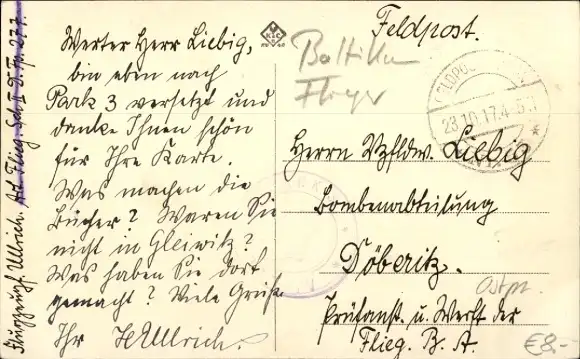 Werter Herr Liebig,
bin eben nach
Park 3 versetzt und
danke Ihnen schön
für Ihre Karte.
Was machen die
Bücher? Waren Sie
nicht in Gleiwitz?
Was haben Sie dort
gemacht? Viele Grüße
Ihr HUllrich.
Flugzeugf. Ullrich. Art. Flieg. Sch. II D. Fp. 277.
Feldpost.
23.10.17.4-5
Herrn Vzfldw. Liebig
Bombenabteilung
Döberitz.
Prüfanst. u. Werft der
Flieg. B. A.
€8.-